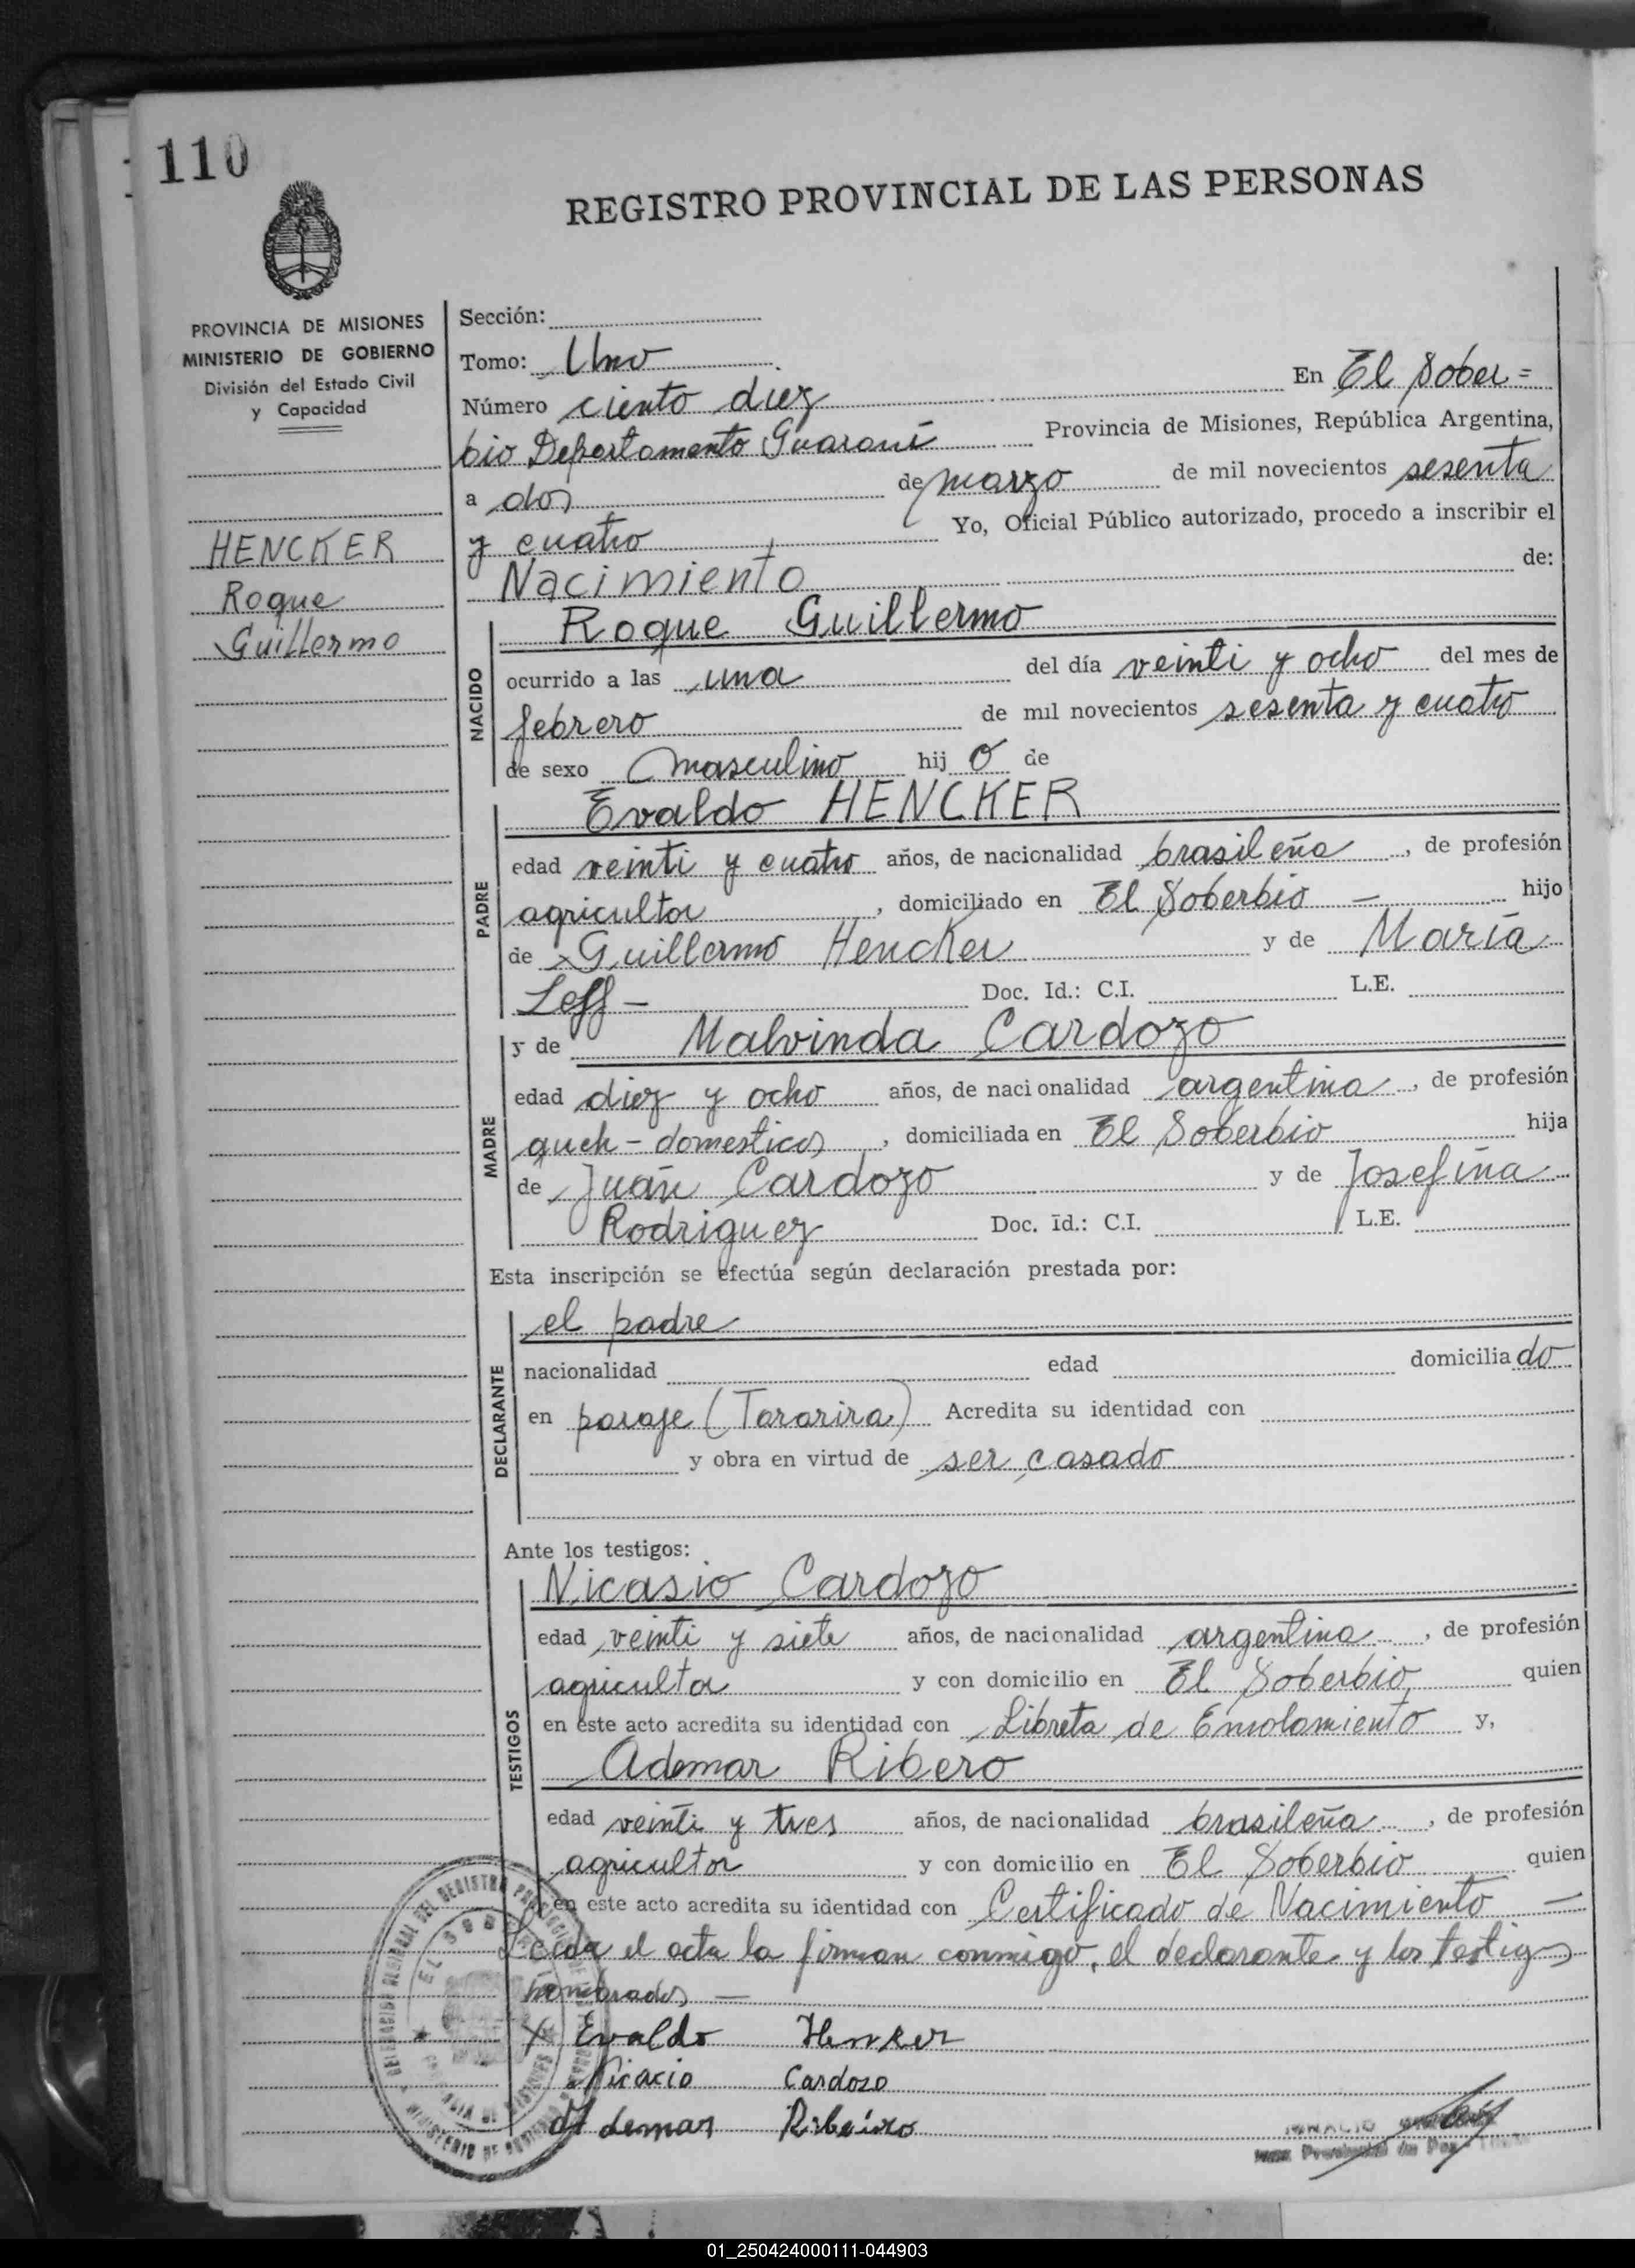 110
REGISTRO PROVINCIAL DE LAS PERSONAS
PROVINCIA DE MISIONES
MINISTERIO DE GOBIERNO
División del Estado Civil
y Capacidad
HENCKER
Roque
Guillermo
Sección:
Tomo: Uno
Número ciento diez En El Sober=
bio Departamento Guaraní Provincia de Misiones, República Argentina,
a dos de marzo de mil novecientos sesenta
y cuatro Yo, Oficial Público autorizado, procedo a inscribir el
Nacimiento de:
NACIDO
Roque Guillermo
ocurrido a las una del día veinti y ocho del mes de
febrero de mil novecientos sesenta y cuatro
de sexo masculino hijo de
PADRE
Evaldo HENCKER
edad veinti y cuatro años, de nacionalidad brasileña, de profesión
agricultor, domiciliado en El Soberbio — hijo
de Guillermo Hencker y de María
Leff — Doc. Id.: C.I. L.E.
MADRE
y de Malvinda Cardozo
edad diez y ocho años, de nacionalidad argentina, de profesión
queh-domesticos, domiciliada en El Soberbio hija
de Juan Cardozo y de Josefina
Rodriguez Doc. Id.: C.I. L.E.
Esta inscripción se efectúa según declaración prestada por:
DECLARANTE
el padre
nacionalidad edad domiciliado
en paraje (Tararira) Acredita su identidad con
y obra en virtud de ser casado
Ante los testigos:
TESTIGOS
Nicasio Cardozo
edad veinti y siete años, de nacionalidad argentina, de profesión
agricultor y con domicilio en El Soberbio, quien
en este acto acredita su identidad con Libreta de Enrolamiento y,
Ademar Ribero
edad veinti y tres años, de nacionalidad brasileña, de profesión
agricultor y con domicilio en El Soberbio quien
en este acto acredita su identidad con Certificado de Nacimiento —
Leida el acta la firman conmigo, el declarante y los testigos
nombrados —
X Evaldo Henker
Nicacio Cardozo
Ademar Ribeiro
IGNACIO
01_250424000111-044903